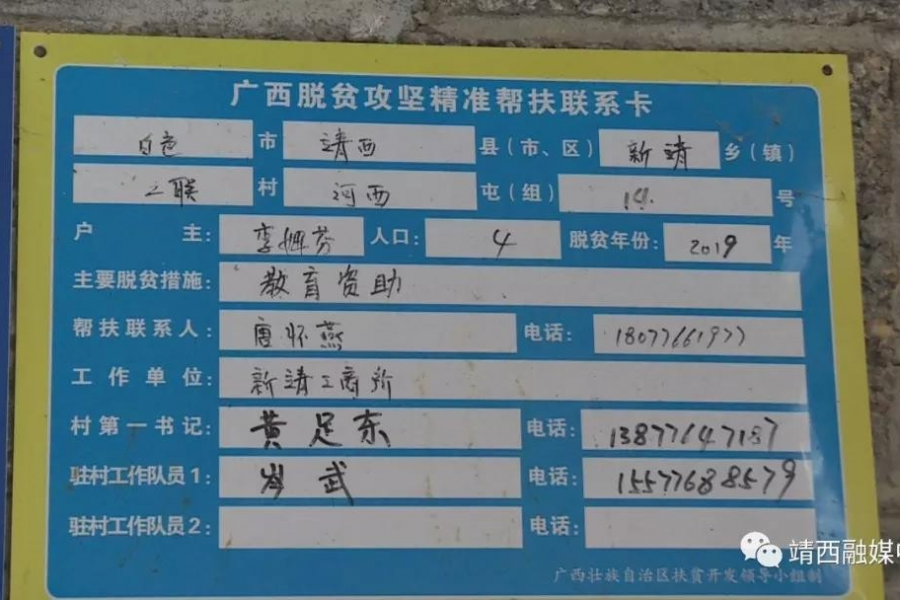 广西脱贫攻坚精准帮扶联系卡
百色 市 靖西 县(市、区) 新靖 乡(镇)
二联 村 河西 屯(组) 14 号
户主: 李娌芬 人口: 4 脱贫年份: 2019 年
主要脱贫措施: 教育资助
帮扶联系人: 唐怀燕 电话: 18077661977
工作单位: 新靖工商所
村第一书记: 黄足东 电话: 13877647187
驻村工作队员1: 岑武 电话: 15577688579
驻村工作队员2: 电话:
靖西融媒
广西壮族自治区扶贫开发领导小组制